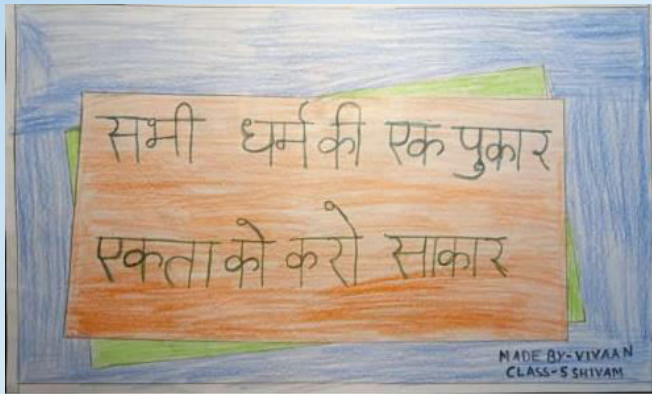 सभी धर्म की एक पुकार
एकता को करो साकार
MADE BY-VIVAAN
CLASS-5 SHIVAM